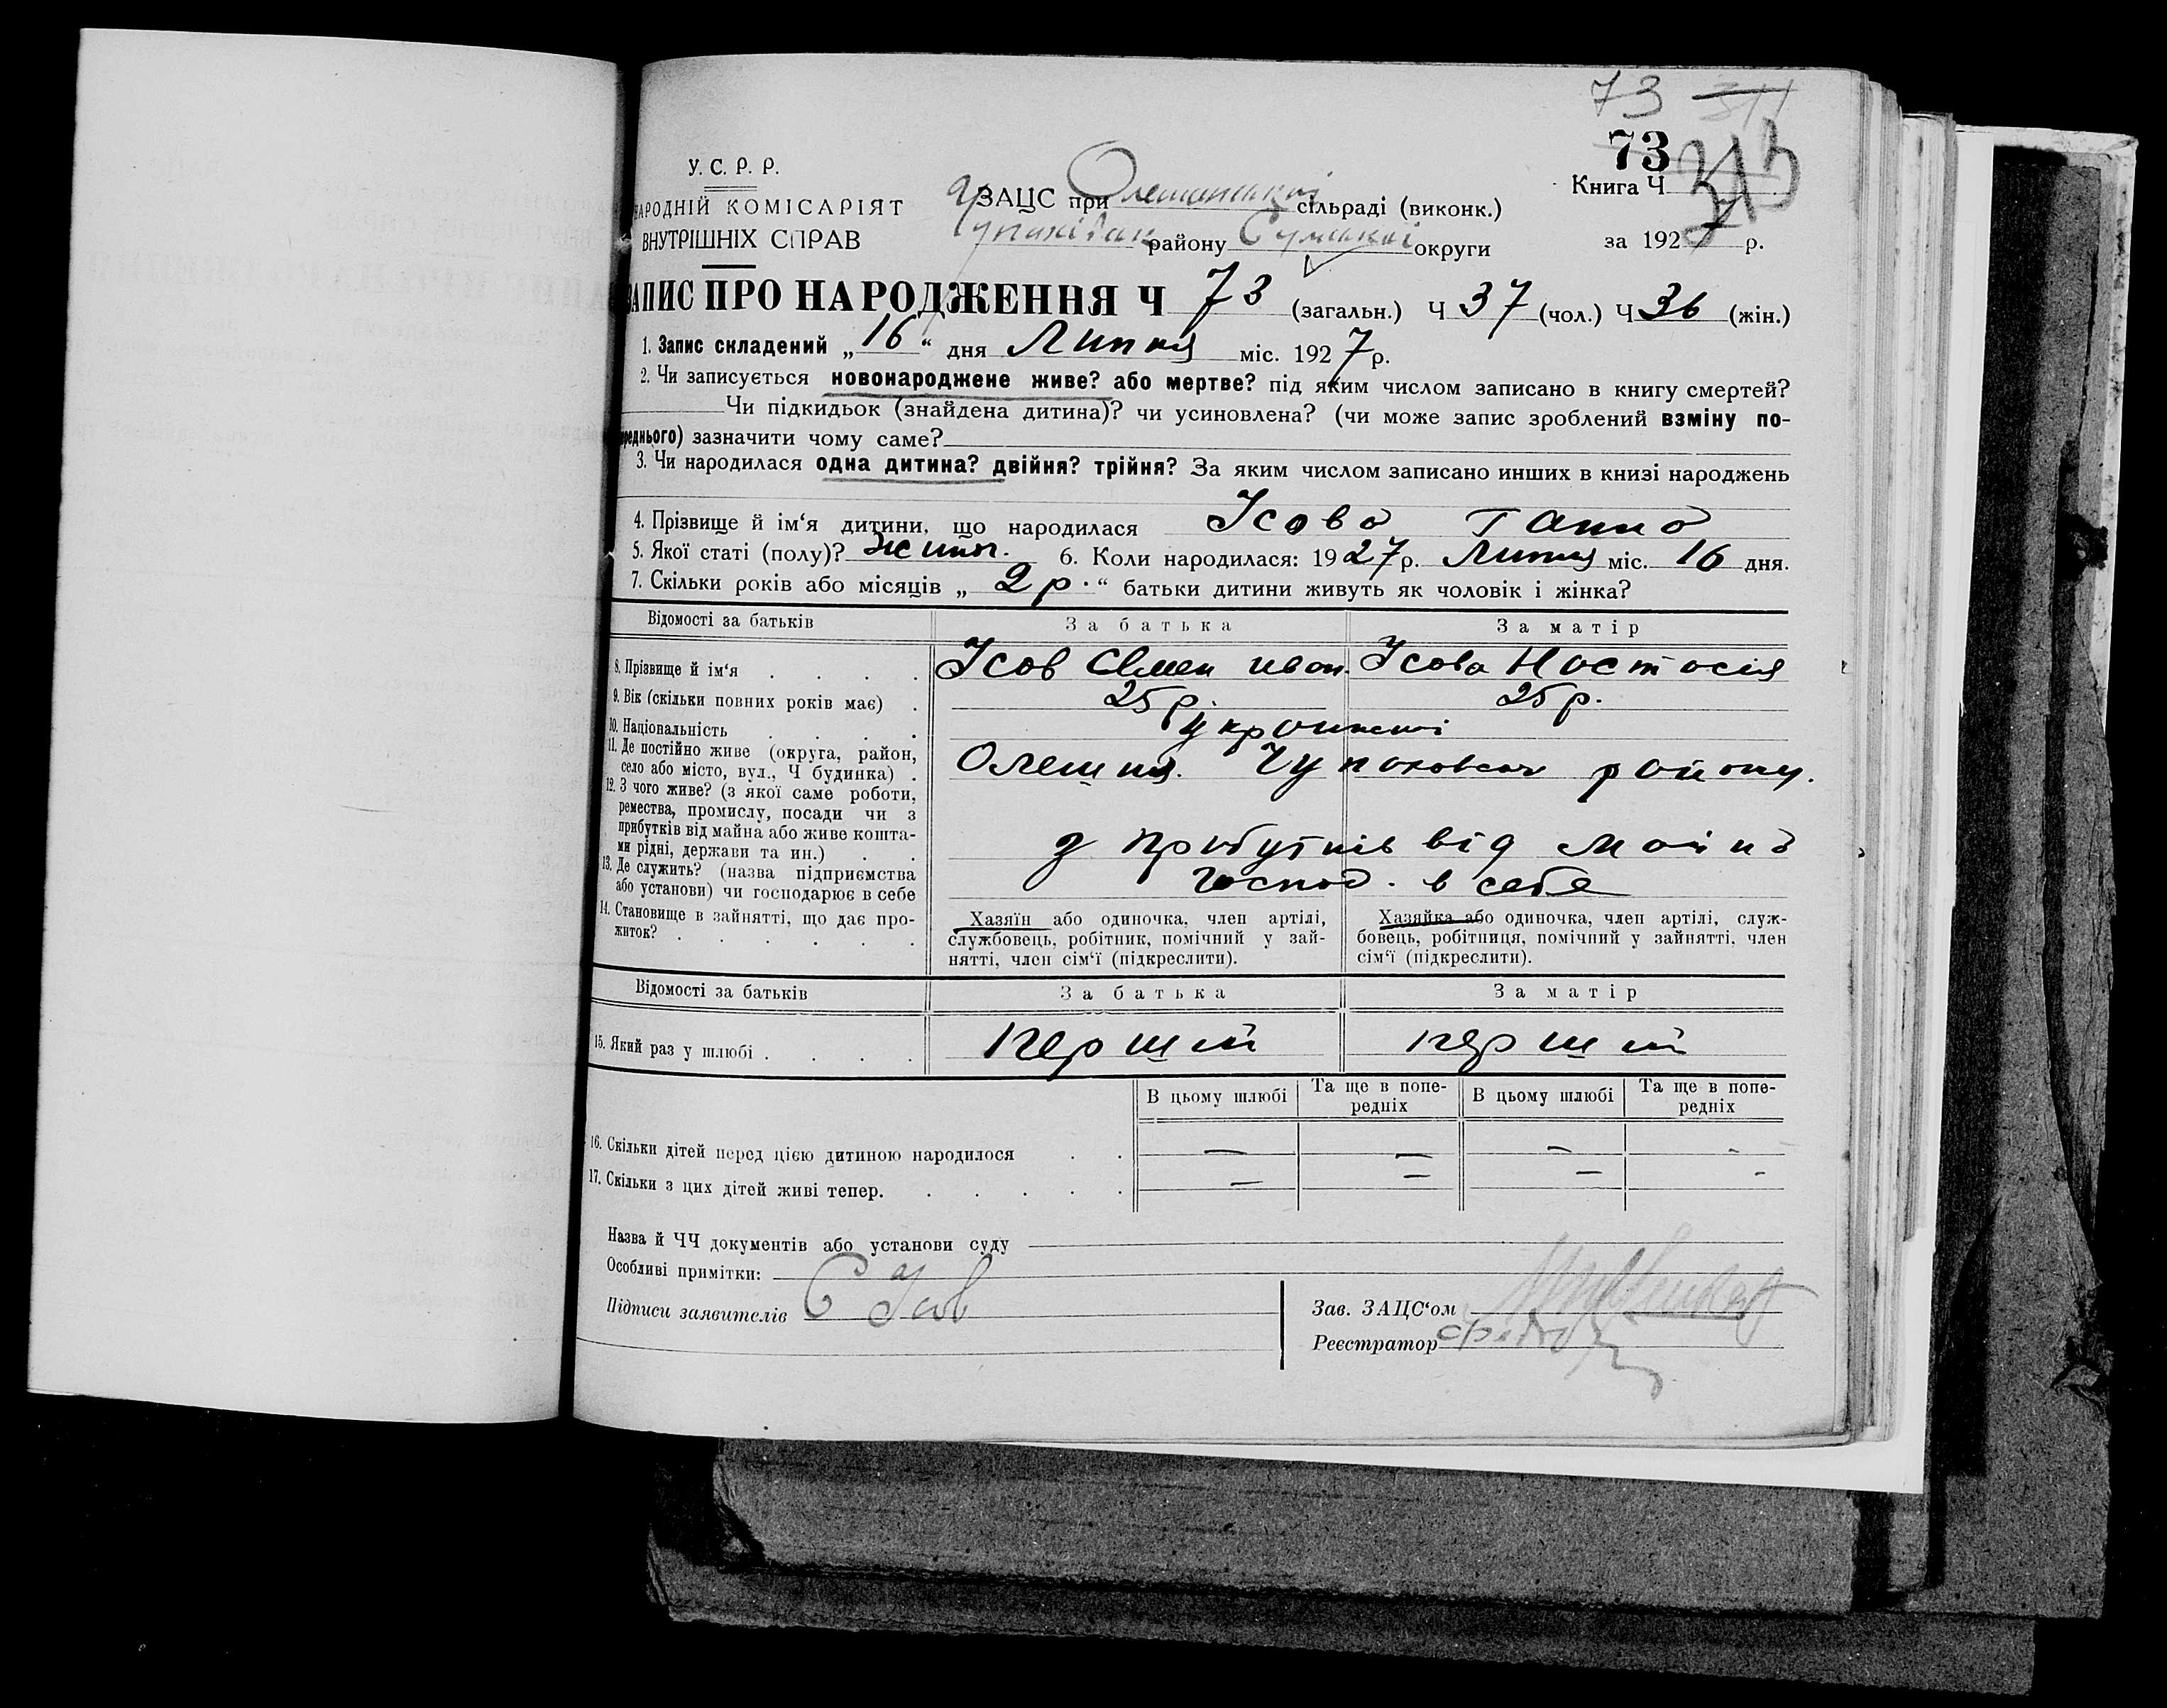 73 311
73 313
У. С. Р. Р.
НАРОДНІЙ КОМІСАРІЯТ
ВНУТРІШНІХ СПРАВ
ЗАЦС при Олешанській сільраді (виконк.)
району Сумської округи
Книга Ч
за 1927 р.
ЗАПИС ПРО НАРОДЖЕННЯ Ч 73 (загальн.) Ч 37 (чол.) Ч 36 (жін.)
1. Запис складений „16“ дня Липня міс. 1927 р.
2. Чи записується новонароджене живе? або мертве? під яким числом записано в книгу смертей?
Чи підкидьок (знайдена дитина)? чи усиновлена? (чи може запис зроблений взміну по-
реднього) зазначити чому саме?
3. Чи народилася одна дитина? двійня? трійня? За яким числом записано инших в книзі народжень
4. Прізвище й ім‘я дитини, що народилася Усова Ганна
5. Якої статі (полу)? жиноч. 6. Коли народилася: 1927 р. Липня міс. 16 дня.
7. Скільки років або місяців „2 р.“ батьки дитини живуть як чоловік і жінка?
Відомості за батьків За батька За матір
8. Прізвище й ім‘я . . . . Усов Семен иван. Усова Настасія
9. Вік (скільки повних років має) . 25 р. 25 р.
10. Національність . . . . українці
11. Де постійно живе (округа, район,
село або місто, вул., Ч будинка) . Олешня. Чупаховсак району.
12. З чого живе? (з якої саме роботи,
ремества, промислу, посади чи з
прибутків від майна або живе кошта-
ми рідні, держави та ин.) . . з прибутків від майна
13. Де служить? (назва підприємства
або установи) чи господарює в себе господ. в себе
14. Становище в зайнятті, що дає про-
житок? . . . . . .
Хазяїн або одиночка, член артілі,
службовець, робітник, помічний у зай-
нятті, член сім‘ї (підкреслити).
Хазяйка або одиночка, член артілі, служ-
бовець, робітниця, помічний у зайнятті, член
сім‘ї (підкреслити).
Відомості за батьків За батька За матір
15. Який раз у шлюбі . . . . перший перший
В цьому шлюбі Та ще в попе-
редніх В цьому шлюбі Та ще в попе-
редніх
16. Скільки дітей перед цією дитиною народилося . . — — — -
17. Скільки з цих дітей живі тепер. . . . . . — — — -
Назва й ЧЧ документів або установи суду
Особливі примітки:
Підписи заявителів С Усов
Зав. ЗАЦС‘ом
Реєстратор